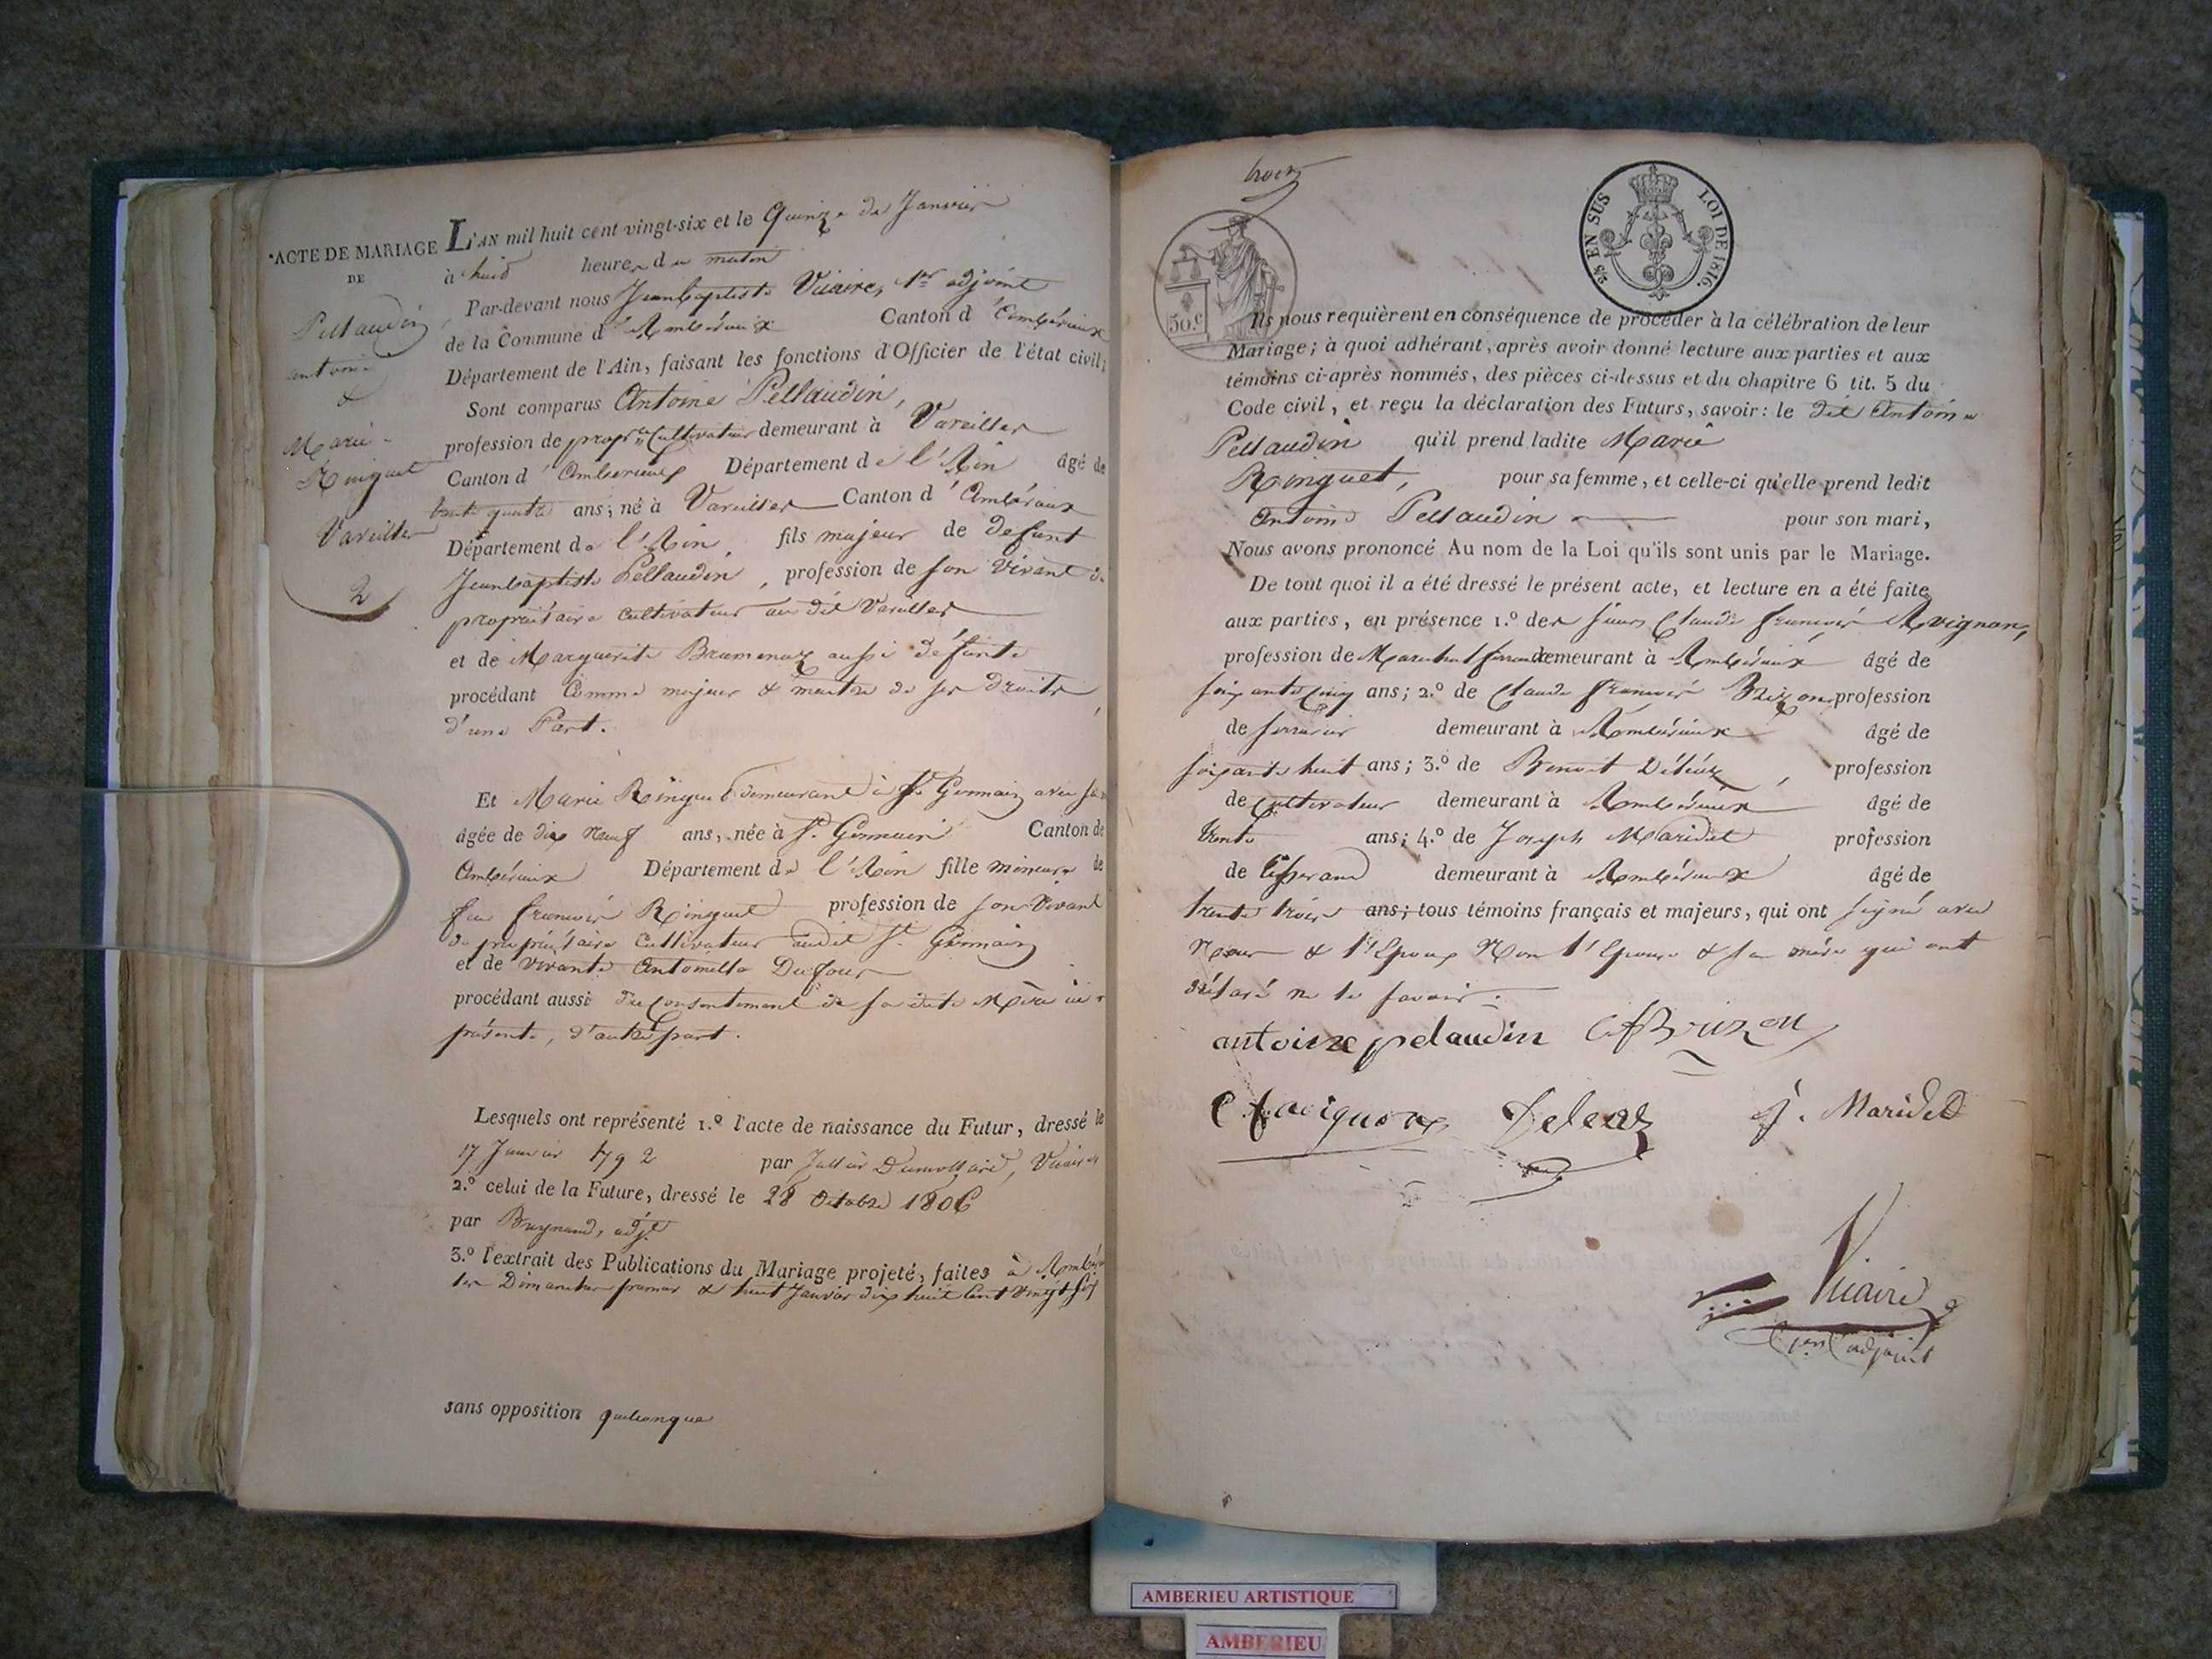 ACTE DE MARIAGE
DE
Pellaudin
antoine
&
Marie
Ringuet
Vareilles
2
L'AN mil huit cent vingt-six et le Quinze de Janvier
à huit heures du matin
Par-devant nous Jean baptiste Vicaire, 1er adjoint
de la Commune d'Ambérieux Canton d'Ambérieux
Département de l'Ain, faisant les fonctions d'Officier de l'état civil;
Sont comparus Antoine Pellaudin,
profession de propre Cultivateur demeurant à Vareilles
Canton d'Amberieux Département de l'Ain âgé de
trente quatre ans; né à Vareilles Canton d'Ambérieux
Département de l'Ain, fils majeur de defunt
Jean baptiste Pellaudin, profession de son vivant de
propriétaire cultivateur au dit Vareilles
et de Marguerite Brumenaz aussi défunte
procédant Comme majeur & maitre de ses droits,
d'une Part.
Et Marie Ringuet demeurant à St Germain avec sa
âgée de dix neuf ans, née à St Germain Canton de
Ambérieux Département de l'Ain fille mineure de
feu françois Ringuet profession de son Vivant
de propriétaire Cultivateur audit St Germain
et de vivante Antoinette Dufour
procédant aussi du Consentement de sa dite Mère ici
présente, d'autre part.
Lesquels ont représenté 1.º l'acte de naissance du Futur, dressé le
17 Janvier 1792 par Dumollard, Vicaire
2.º celui de la Future, dressé le 28 Octobre 1806
par adjt
3.º l'extrait des Publications du Mariage projeté, faites à Ambérx
les Dimanches premier & huit Janvier dix huit Cent Vingt Six
sans opposition quelconque
trois
50.c
2/5 EN SUS LOI DE 1816.
Ils nous requièrent en conséquence de procéder à la célébration de leur
Mariage; à quoi adhérant, après avoir donné lecture aux parties et aux
témoins ci-après nommés, des pièces ci-dessus et du chapitre 6 tit. 5 du
Code civil, et reçu la déclaration des Futurs, savoir: le dit Antoine
Pellaudin qu'il prend ladite Marie
Ringuet, pour sa femme, et celle-ci qu'elle prend ledit
Antoine Pellaudin pour son mari,
Nous avons prononcé Au nom de la Loi qu'ils sont unis par le Mariage.
De tout quoi il a été dressé le présent acte, et lecture en a été faite
aux parties, en présence 1.º des sieurs Claude françois Avignon,
profession de Marechal ferrant demeurant à Ambérieux âgé de
soixante Cinq ans; 2.º de Claude françois Brizon profession
de serrurier demeurant à Ambérieux âgé de
soixante huit ans; 3.º de Benoit Déléaz, profession
de Cultivateur demeurant à Ambérieux âgé de
trente ans; 4.º de Joseph Maridet profession
de tisserand demeurant à Ambérieux âgé de
trente trois ans; tous témoins français et majeurs, qui ont signé avec
Nous & l'Epoux Non l'Epouse & sa mère qui ont
déclaré ne le savoir.
antoine pelaudin CfBrizon
C f avignon Deleaz J. Maridet
Vicaire
1er adjoint
AMBERIEU ARTISTIQUE
AMBERIEU